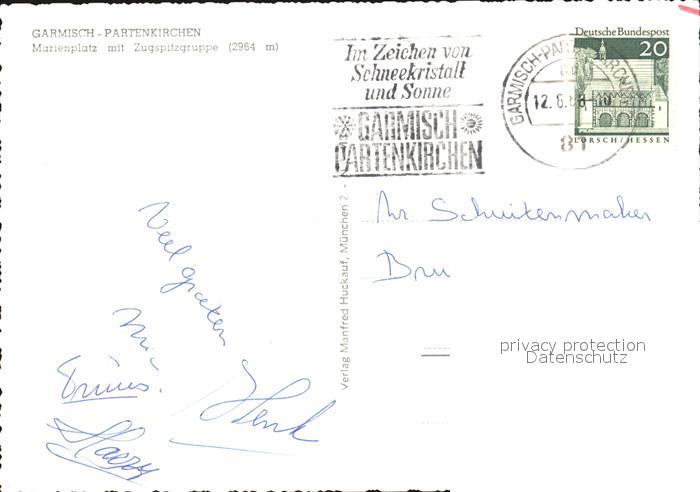 GARMISCH - PARTENKIRCHEN
Marienplatz mit Zugspitzgruppe (2964 m)
Im Zeichen von
Schneekristall
und Sonne
GARMISCH
PARTENKIRCHEN
GARMISCH-PARTENKIRCHEN
12.6.68
81
Deutsche Bundespost
20
LORSCH/HESSEN
Veel groeten
Henk
Verlag Manfred Huckauf, München 2 -
Schuitenmaker
privacy protection
Datenschutz